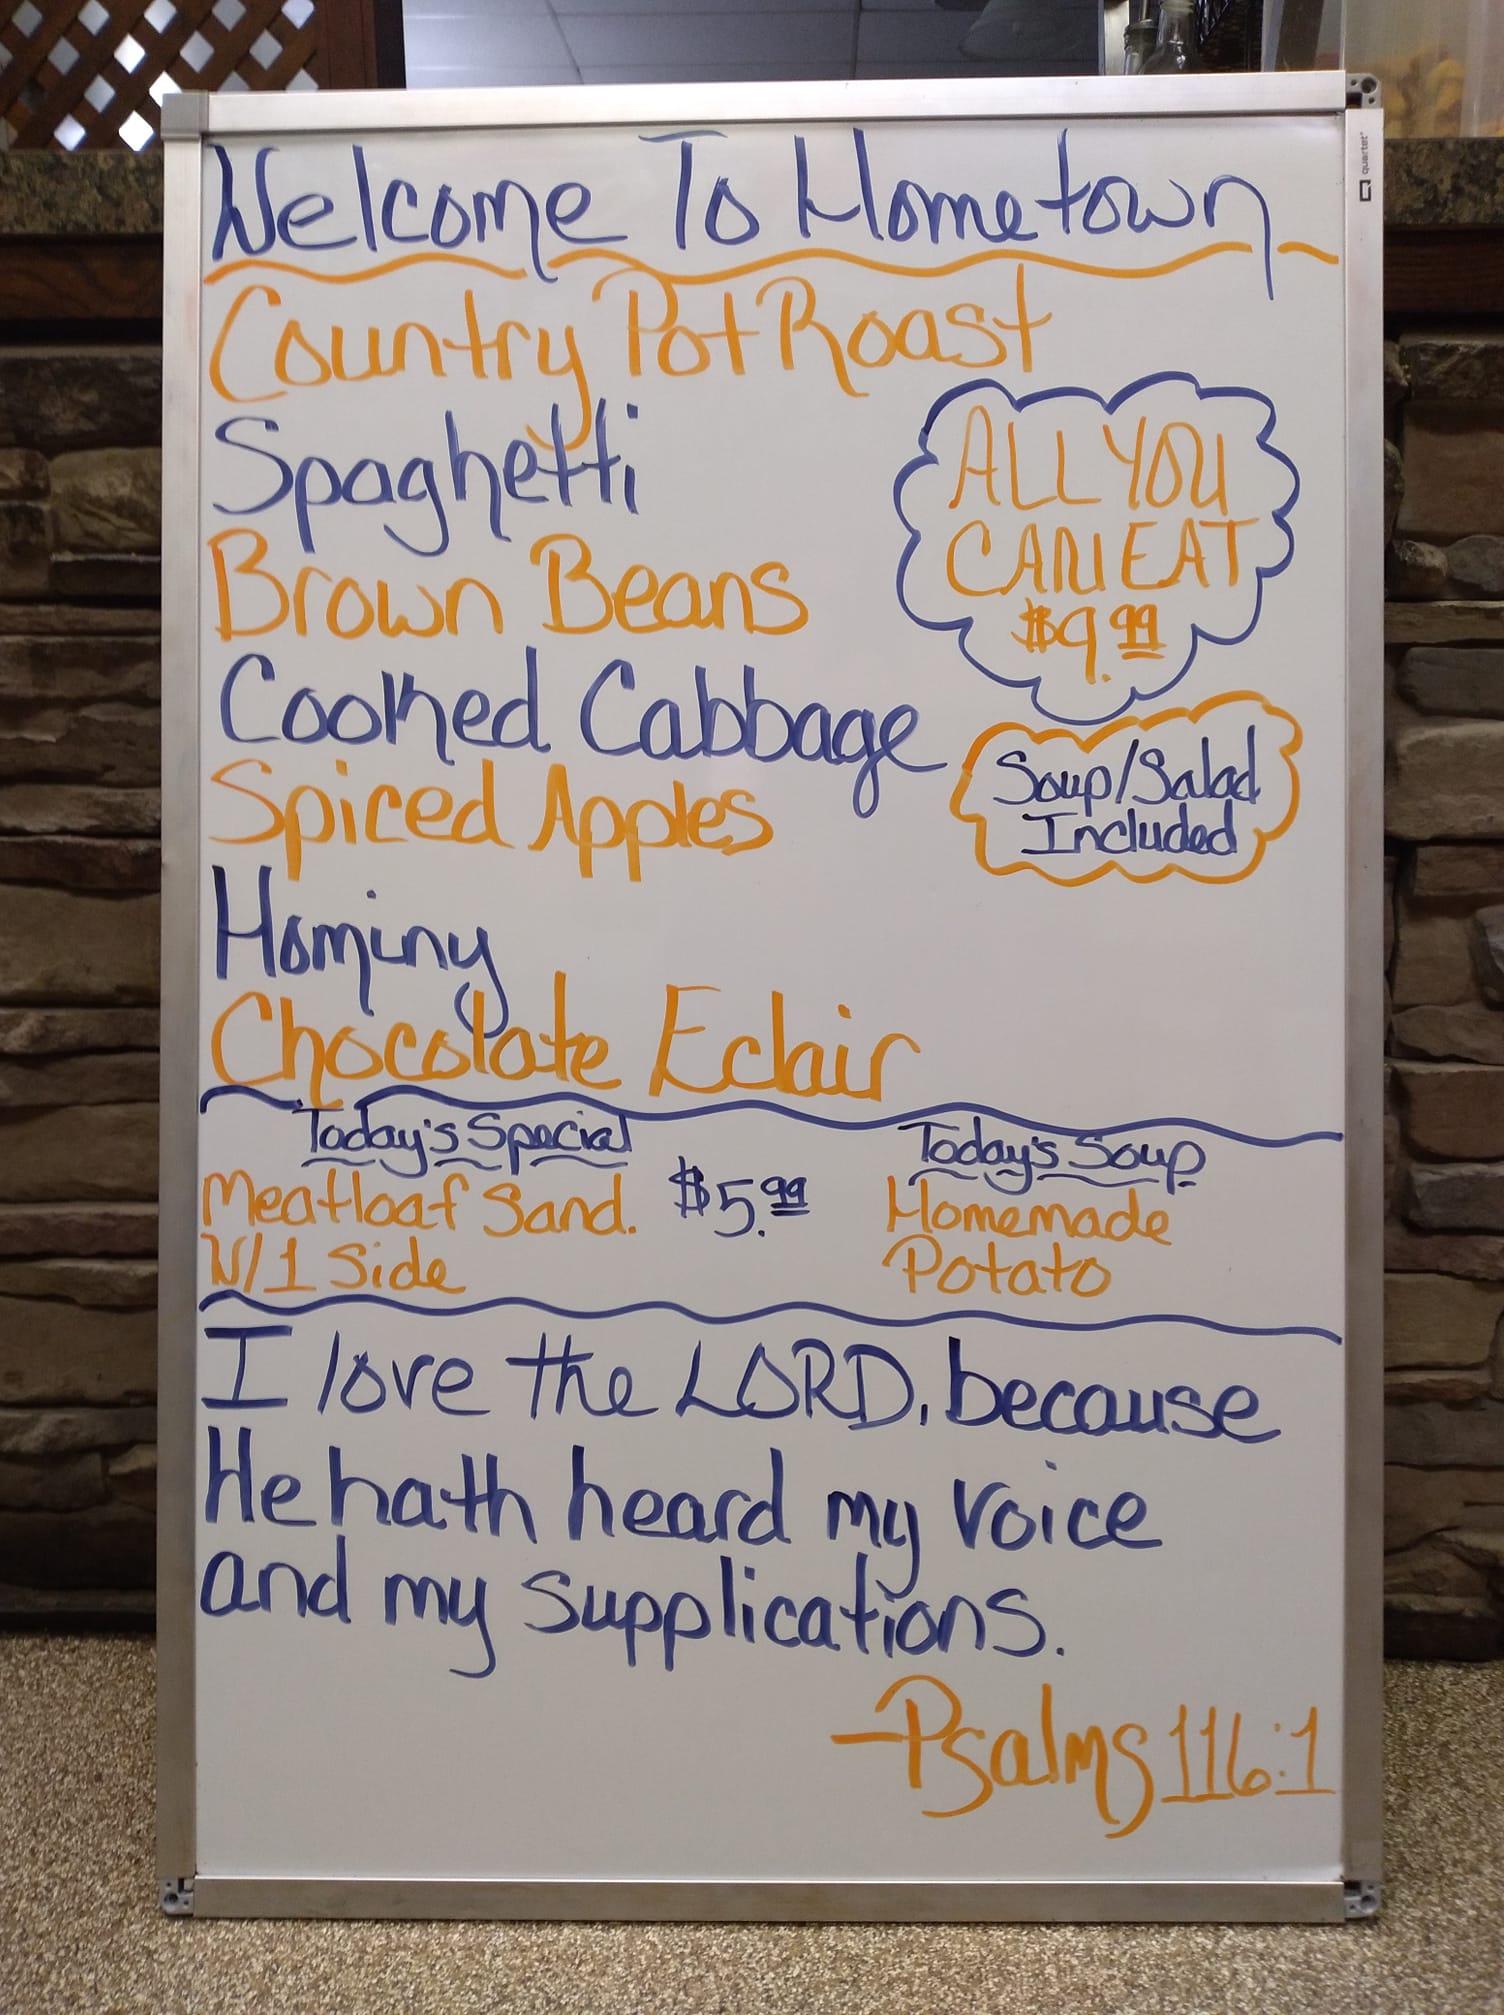 Welcome To Hometown
Country Pot Roast
Spaghetti
Brown Beans
Cooked Cabbage
Spiced Apples
Hominy
Chocolate Eclair
ALL YOU
CAN EAT
$9.99
Soup/Salad
Included
Today's Special
Meatloaf Sand.
W/1 Side
$5.99
Today's Soup
Homemade
Potato
I love the LORD, because
He hath heard my voice
and my supplications.
-Psalms 116:1
quartet